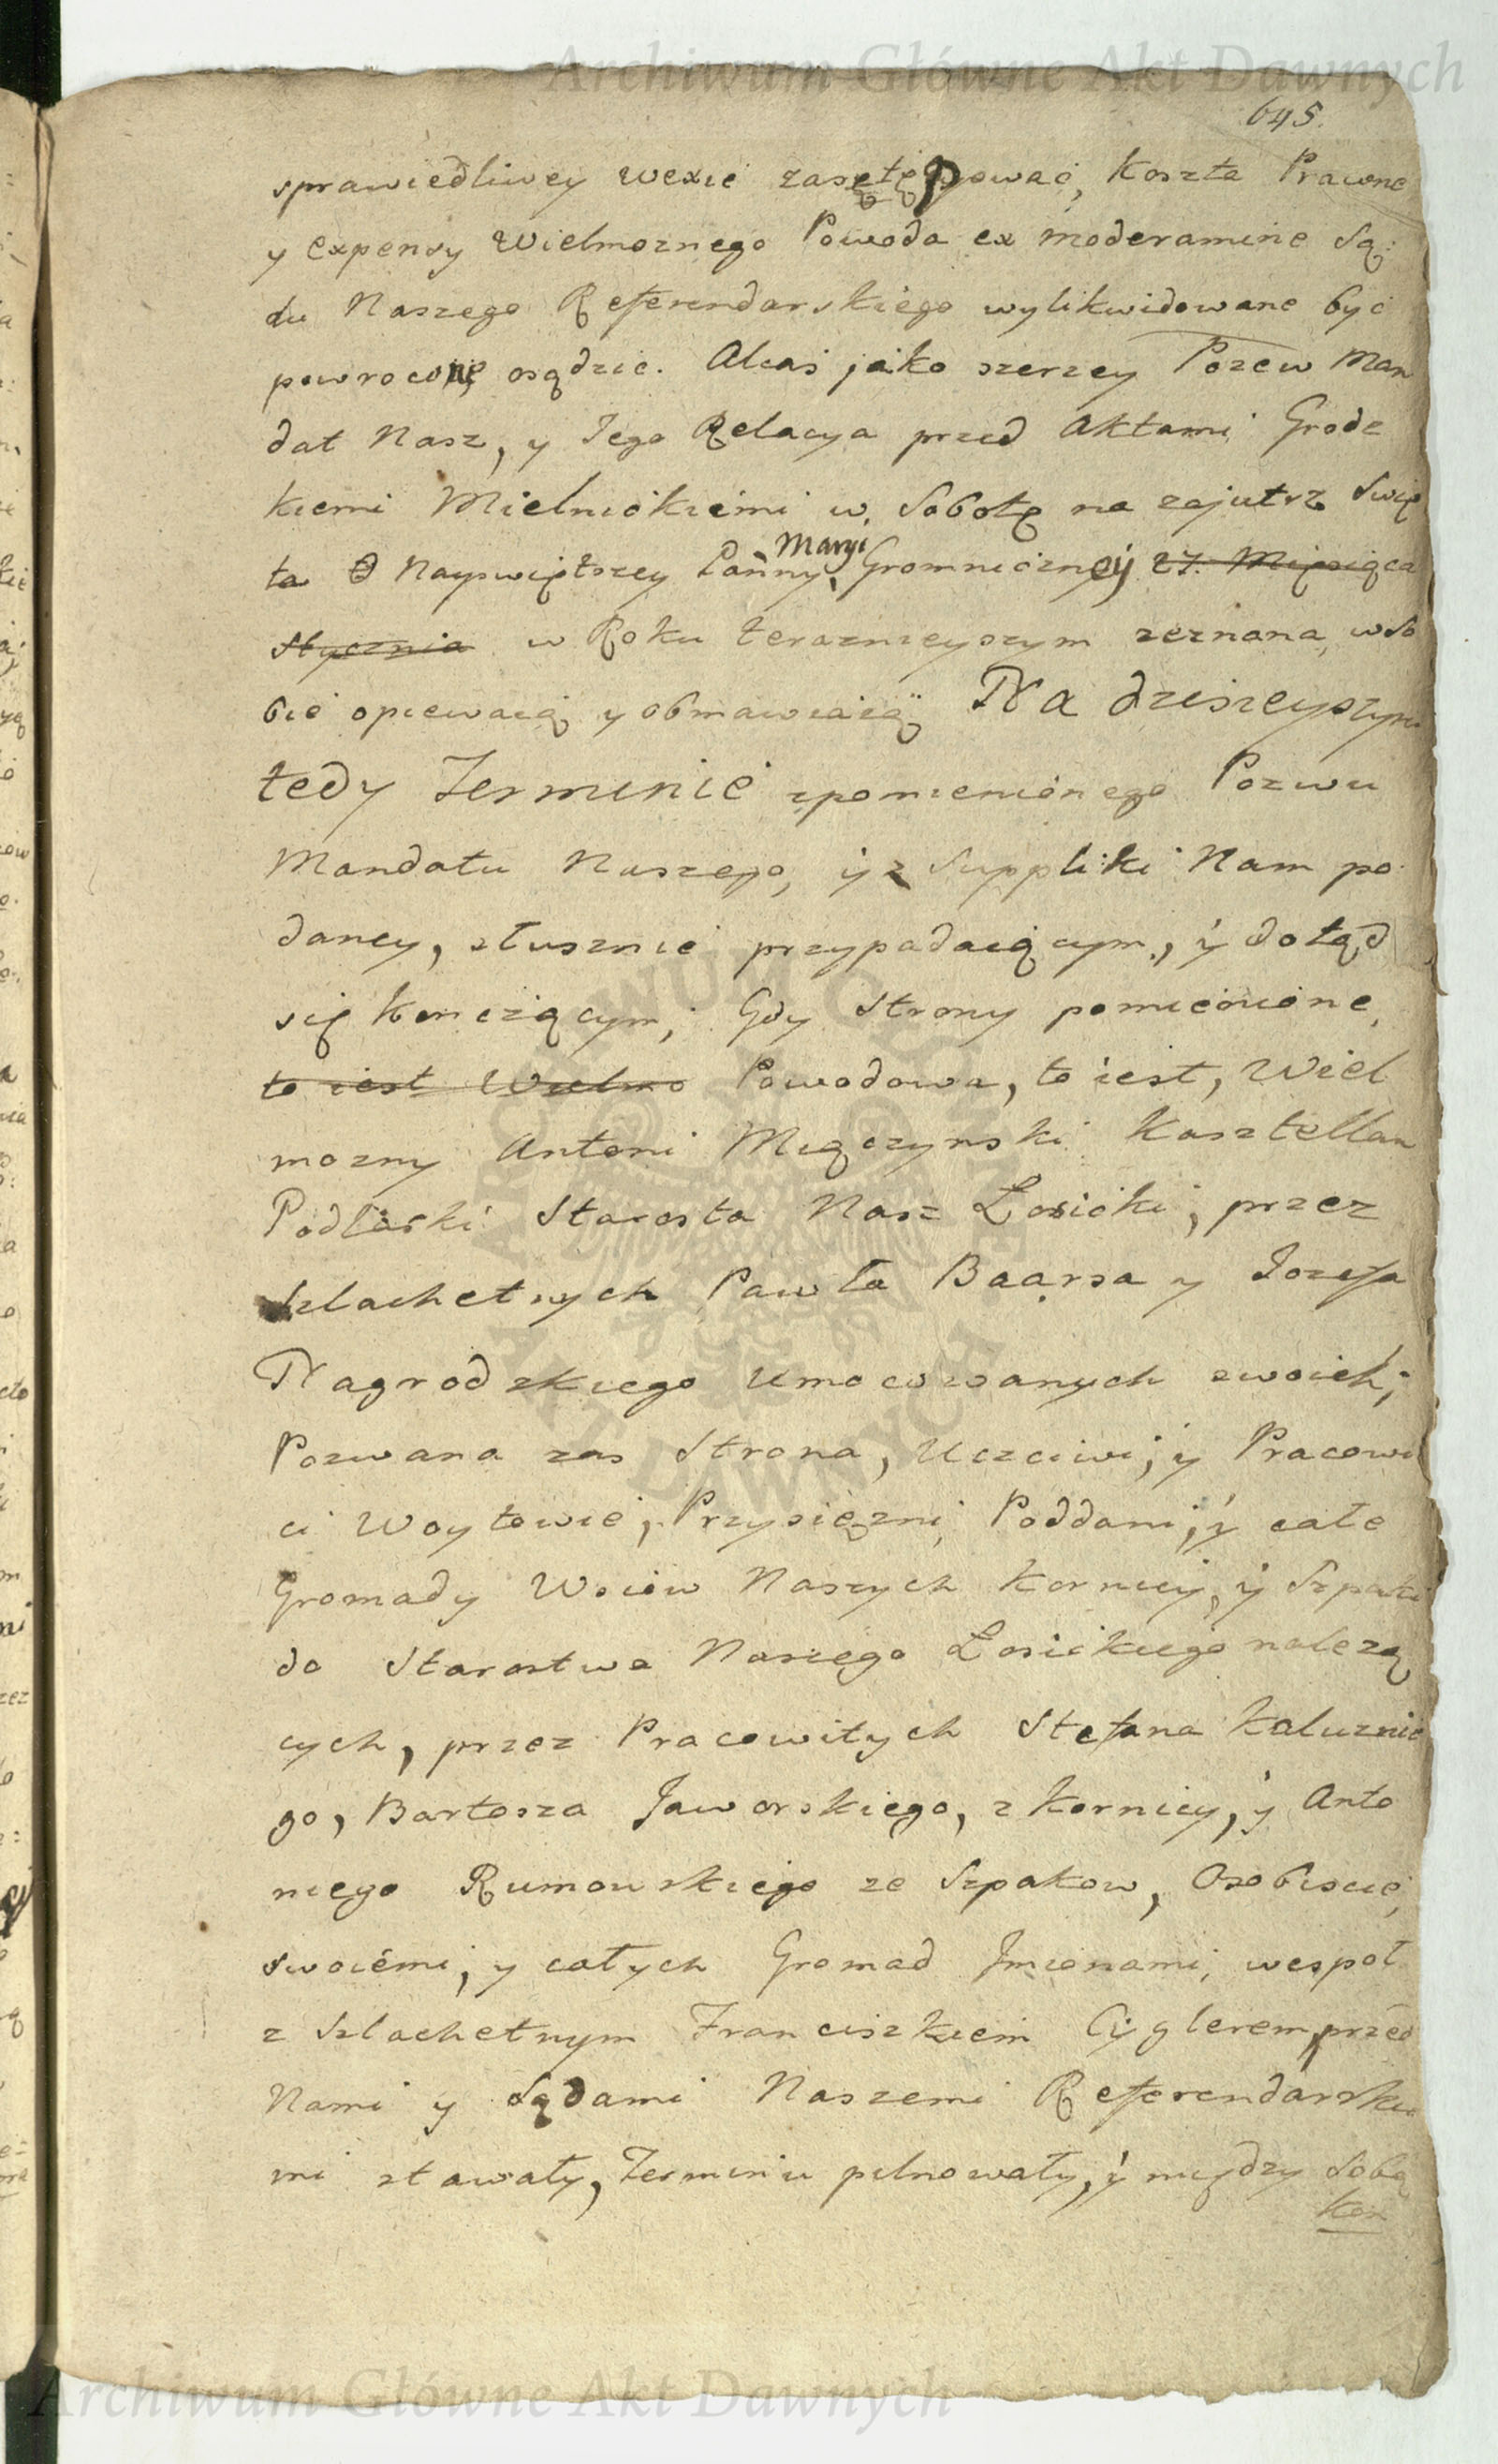 Archiwum Główne Akt Dawnych
645.
sprawiedliwey wexie zastępować, Koszta Prawne
y expensy Wielmoznego Powoda ex moderamine Są:
du Naszego Referendarskiego wylikwidowane być
powrocone osądzic. Alias jako szerzey Pozew Man
dat Nasz, y Jego Relacya przed Aktami Grodz
kiemi Mielnickiemi w Sobotę na zajutrz Swię
ta Nayswiętszey Panny Maryi Gromniczney 27. Miesiąca
Stycznia w Roku teraznieyszym zeznana, w So
bie opiewaią y obmawiaią. Na dzisieyszym
tedy Terminie zpomienionego Pozwu
Mandatu Naszego, y z Suppliki Nam po
daney, słusznie przypadaiącym, y dotąd
się konczącym, Gdy Strony pomienione,
to iest Wielmo Powodowa, to iest, Wiel
mozny Antoni Miączynski Kasztellan
Podlaski Starosta Nasz Łosicki, przez
Szlachetnych Pawła Baarsa y Jozefa
Nagrodzkiego Umocowanych swoich;
Pozwana zas Strona, Uczciwi, y Pracowi
ci Woytowie, Przysięzni Poddani, y całe
Gromady Wsiow Naszych Kornicy, y Szpaki
do Starostwa Naszego Łosickiego nalezą
cych, przez Pracowitych Stefana Kaluznie
go, Bartosza Jaworskiego, z Kornicy, y Anto
niego Rumowskiego ze Szpakow, Osobiscie,
swoiemi, y całych Gromad Jmionami, wespoł
z Szlachetnym Franciszkiem Cyglerem, przed
Nami y Sądami Naszemi Referendarskie
mi stawały, Terminu pilnowały, y między Sobą
kon
Archiwum Główne Akt Dawnych